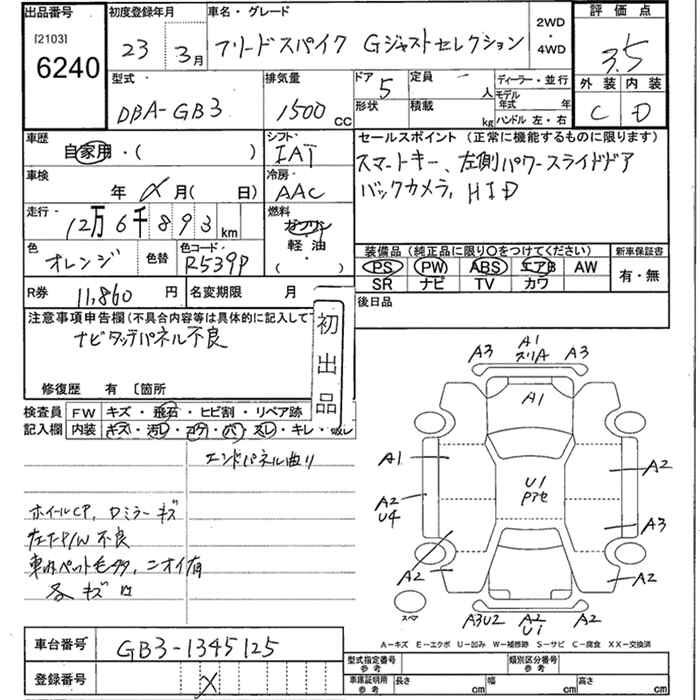 出品番号
[2103]
6240
初度登録年月
23 3月
車名・グレード
フリードスパイク Gジャストセレクション
2WD
・
4WD
評価点
3.5
外装 内装
C D
型式
DBA-GB3
排気量
1500 CC
ドア
5
定員
人
形状
積載
kg
ディーラー・並行
モデル
年式 年
ハンドル 左・右
車歴
自家用・( )
シフト
IAT
セールスポイント (正常に機能するものに限ります)
スマートキー、左側パワースライドドア
バックカメラ, HID
車検
年 月( 日)
冷房
AAC
走行
12万6千893km
燃料
ガソリン
軽油
・
( )
色
オレンジ
色替
色コード
R539P
装備品 (純正品に限り〇をつけてください)
PS PW ABS エアB AW
SR ナビ TV カワ
新車保証書
有・無
R券
11,860 円
名変期限 月
後日品
注意事項申告欄(不具合内容等は具体的に記入して
ナビタッチパネル不良
初出品
修復歴 有 〔箇所
検査員
記入欄
FW キズ・飛石・ヒビ割・リペア跡
内装 キズ・汚レ・コゲ・穴・スレ・キレ・破レ
エンドパネル曲り
ホイールCP, Dミラーキズ
左下P/W不良
車内ペット毛多, ニオイ有
各キズ凹
A3 A1 A3
スリA
A1
A1
U1
Pアセ
A2
A2
U4
A3
A2
A2
スペア
A3U2
A2
U1
A2
A−キズ E−エクボ U−凹み W−補修跡 S−サビ C−腐食 XX−交換済
車台番号
GB3-1345125
登録番号
X
型式指定番号
参考
類別区分番号
参考
車庫証明用
参考
長さ cm
幅 cm
高さ cm